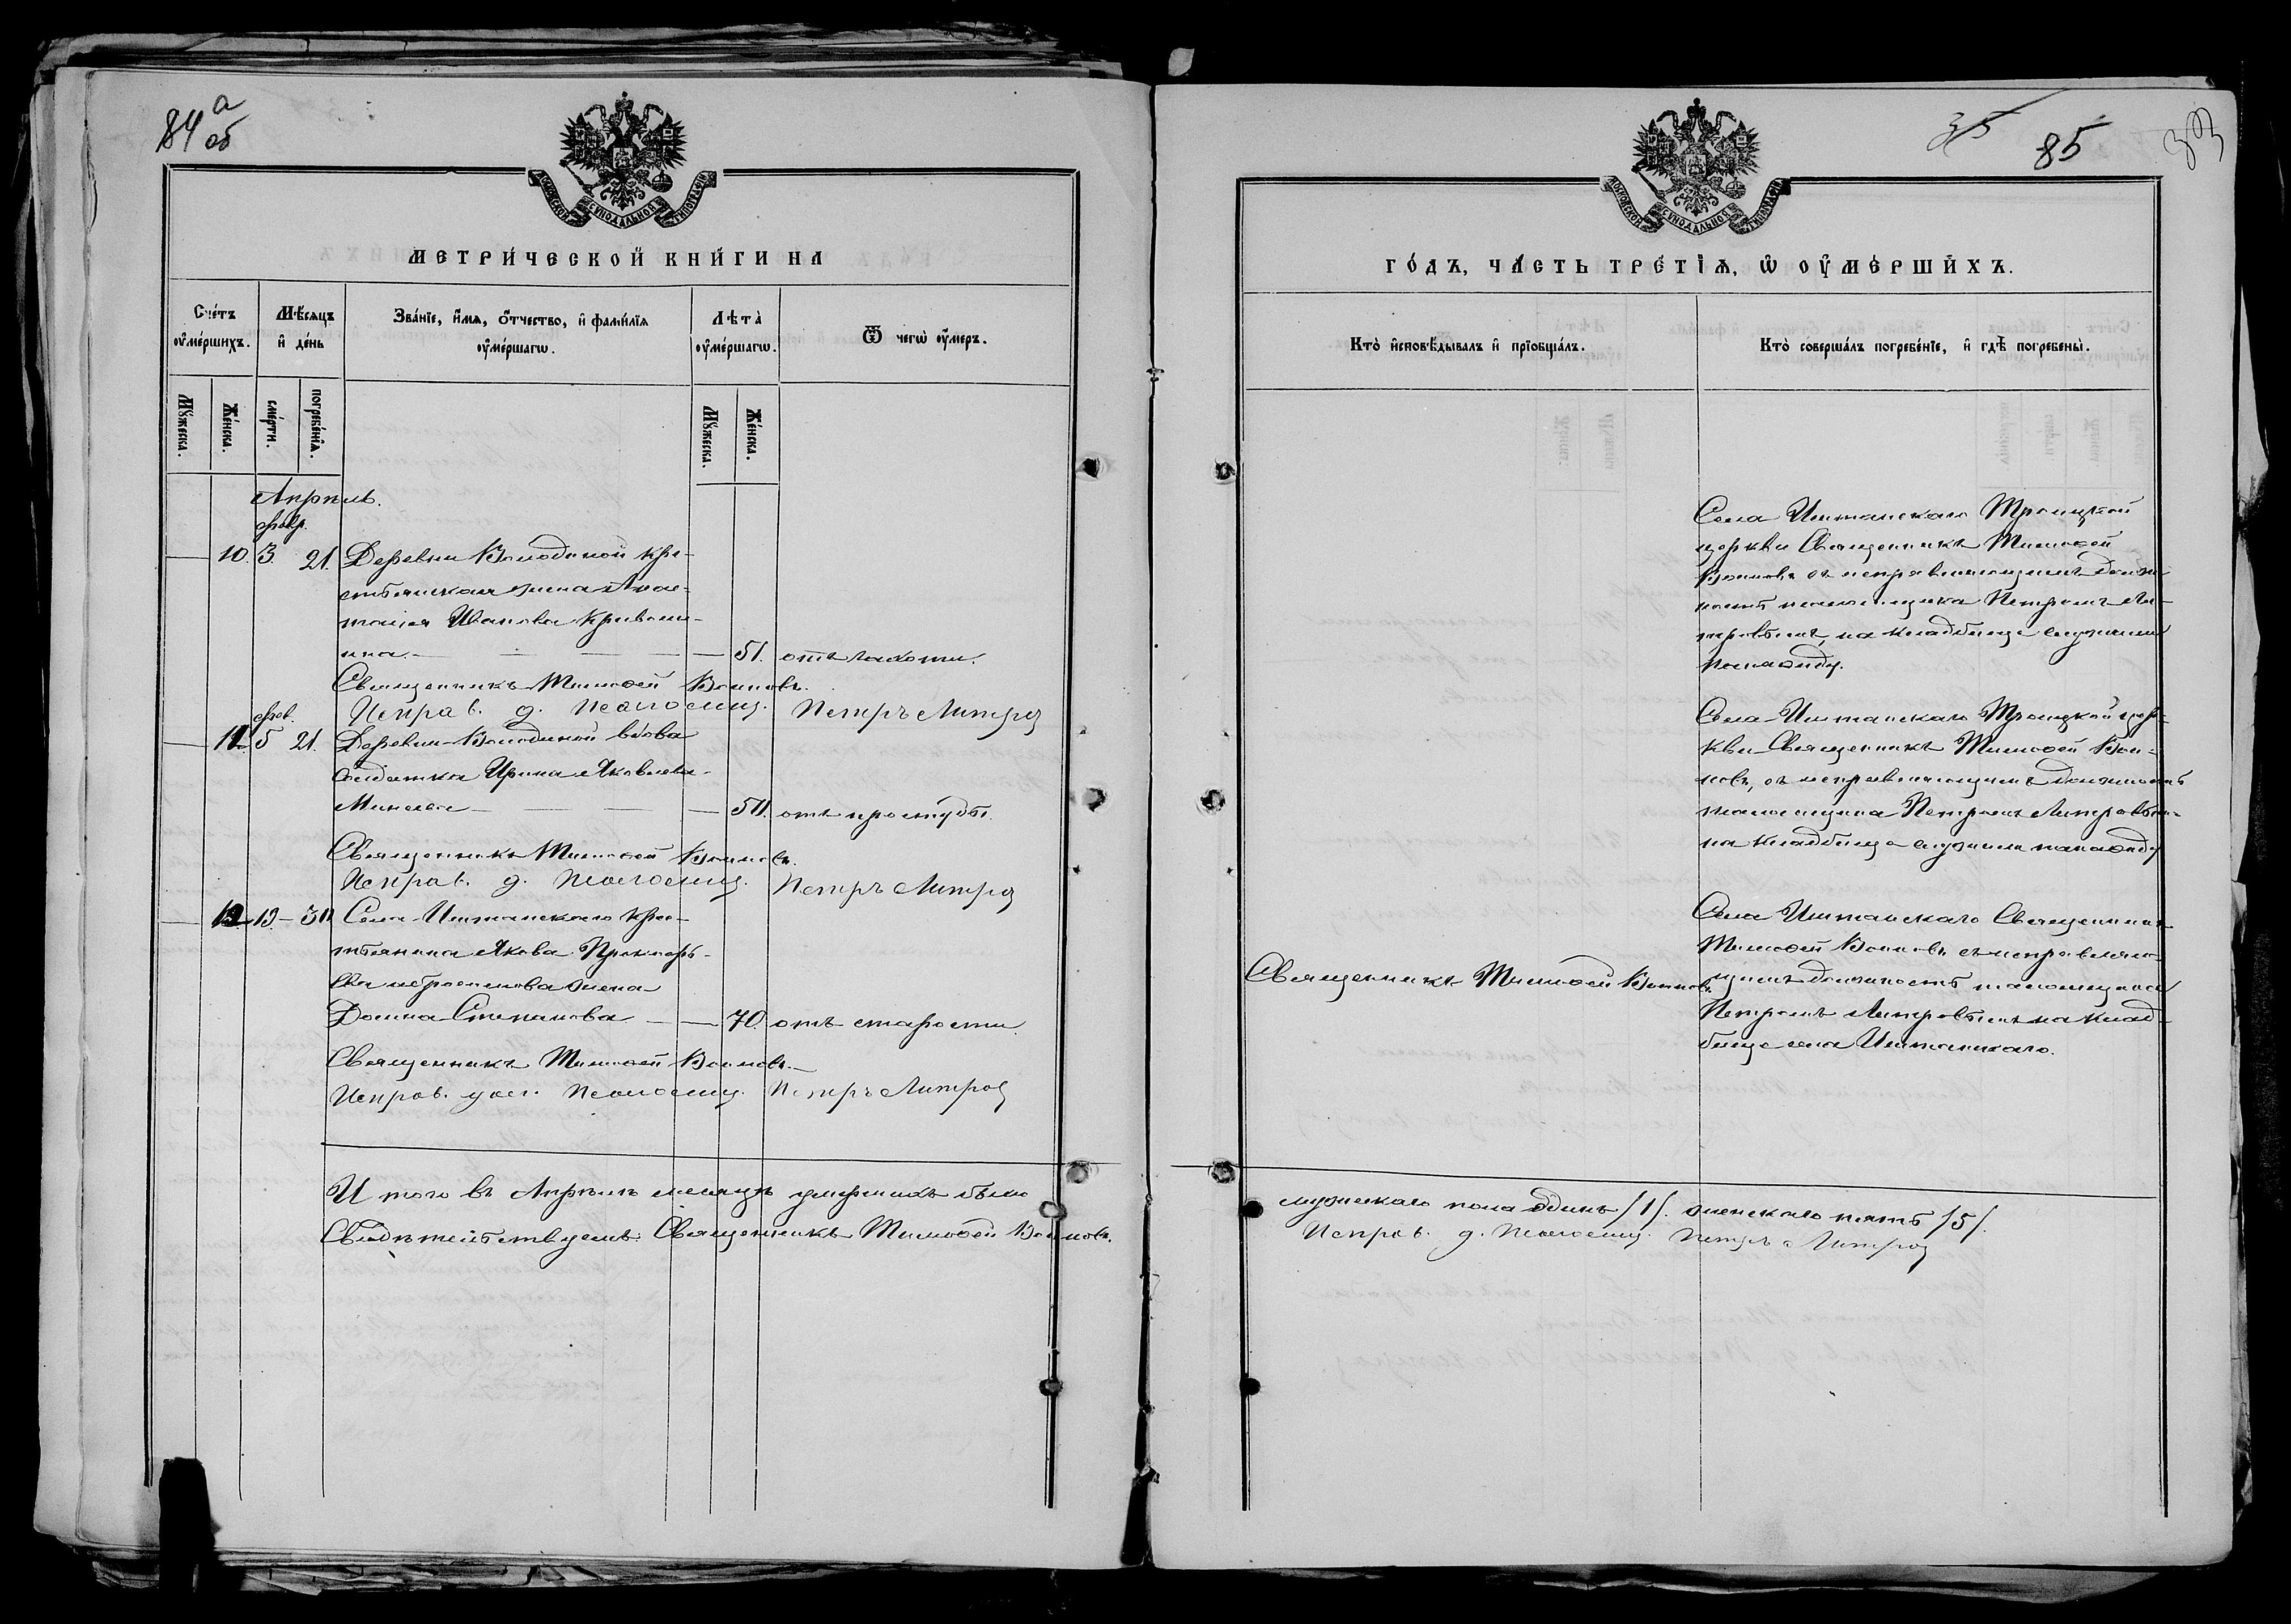 84 а об
МОСКОВСКОЙ СѴНОДАЛЬНОЙ ТИПОГРАФІИ
МЕТРИ́ЧЕСКОЙ КНИ́ГИ НА
Сче́тъ оу҆ме́ршихъ.
Мѣ́сяцъ и҆ де́нь
Зва́нїе, и҆́мѧ, ѻ҆́тчество, и҆ фамѝлїѧ оу҆ме́ршагѡ.
Лѣ́та̀ оу҆ме́ршагѡ.
Ѿ чегѡ̀ оу҆́меръ.
Мꙋ́жеска.
Же́нска.
сме́рти.
погребе́нїѧ.
Мꙋ́жеска.
Же́нска.
Апрѣль.
февр.
10. 3. 21. Деревни Володиной кре-
стьянская жена Анас-
тасія Иванова Кривоши-
ина. 51. отъ чахотки.
Священникъ Тимофей Воиновъ.
Исправ. д. Псаломщ. Петръ Литров
фев.
11. 5 21. Деревни Володиной вдова
солдатка Ирина Яковлева
Минеева 50. отъ простуды.
Священникъ Тимофей Воиновъ.
Исправ. д. Псаломщ. Петръ Литров
12. 19 30 Села Иштанскаго крес-
тьянина Якова Прокопь-
ева жена
Домна Степанова 70. отъ старости
Священникъ Тимофей Воиновъ.
Исправ. дол. Псаломщ. Петръ Литров
И того въ Апрѣлѣ месяцѣ умершихъ было
Свидѣтельствуемъ: Священникъ Тимофей Воиновъ.
35 85
МОСКОВСКОЙ СѴНОДАЛЬНОЙ ТИПОГРАФІИ
ГО́ДЪ, ЧА́СТЬ ТРЕ́ТЇѦ, Ѡ҆ ОУ҆МЕ́РШИХЪ.
Кто̀ и҆сповѣ́дывалъ и҆ прїѡбща́лъ.
Кто̀ соверша́лъ погребе́нїе, и҆ гдѣ̀ погребены̀.
Села Иштанскаго Троицкой
церкви Священникъ Тимофей
Воиновъ съ исправляющимъ долж-
ность псаломщика Петромъ Ли-
тровымъ, на кладбище служили
панихиду.
Села Иштанскаго Троицкой цер-
кви Священникъ Тимофей Вои-
новъ, съ исправляющимъ должность
псаломщика Петромъ Литровым
на кладбище служили панихиду
Священникъ Тимофей Воиновъ
Села Иштанскаго Священникъ
Тимофей Воиновъ съ исправляю-
щимъ должность псаломщика
Петромъ Литровымъ на клад-
бище села Иштанскаго.
мужескаго пола одинъ /1/. женскаго пять /5/.
Исправ. д. Псаломщ. Петръ Литров